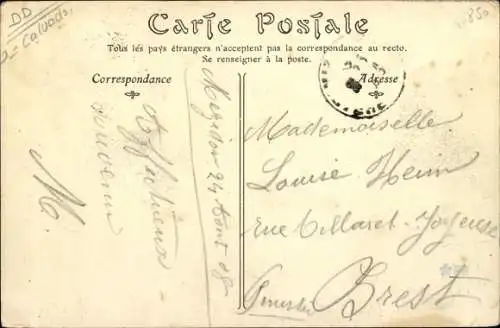 DD
Calvados
850
Carte Postale
Tous les pays étrangers n'acceptent pas la correspondance au recto.
Se renseigner à la poste.
Correspondance
Adresse
24 Août 08
Affectueux
souvenir
M.
Mademoiselle
Louise
Rue Villaret-Joyeuse
Brest
Finistère